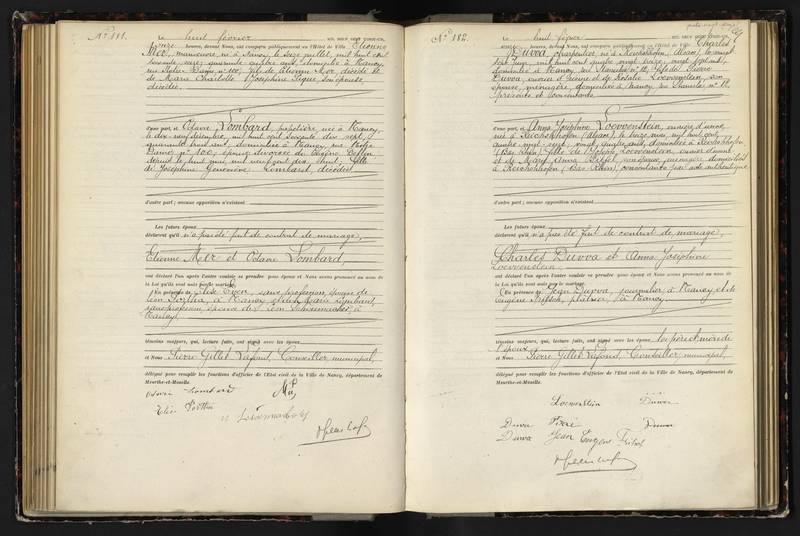 N° 181.
Le huit février MIL NEUF CENT VINGT-UN,
onze heures, devant Nous, ont comparu publiquement en l'Hôtel de Ville Etienne
manœuvre, né à Nancy, le seize juillet, mil huit cent
soixante seize, quarante quatre ans, domicilié à Nancy,
rue Notre Dame n° 100, fils de Etienne décédé et
de Marie Charlotte Joséphine son épouse
décédée
d'une part, et Octavie Lombard, papetière, née à Nancy,
le dix neuf décembre, mil huit cent soixante dix sept,
quarante trois ans, domiciliée à Nancy, rue Notre
Dame n° 100, épouse divorcée de Eugène
depuis le huit mai, mil neuf cent dix huit, fille
de Joséphine Geneviève Lombard, décédée
d'autre part ; aucune opposition n'existant
Les futurs époux
déclarent qu'il n'a pas été fait de contrat de mariage,
Etienne et Octavie Lombard,
ont déclaré l'un après l'autre vouloir se prendre pour époux et Nous avons prononcé au nom de
la Loi qu'ils sont unis par le mariage.
En présence de Elise sans profession, épouse de
Léon à Nancy et de Marie Lombard,
sans profession, épouse de Léon à
Nancy
témoins majeurs, qui, lecture faite, ont signé avec les époux
et Nous Pierre Gillet Lafond, Conseiller municipal,
délégué pour remplir les fonctions d'officier de l'Etat civil de la Ville de Nancy, département de
Meurthe-et-Moselle.
Lombard
N° 182.
Le huit février MIL NEUF CENT VINGT-UN,
onze heures, devant Nous, ont comparu publiquement en l'Hôtel de Ville Charles
Durva charpentier, né à Reichshoffen, (Alsace), le vingt
domicilié à Nancy rue n° 18, fils de Pierre
Durva, ouvrier d'usine et de Rosalie Loewenstein, son
épouse, ménagère, domiciliés à Nancy, rue n° 18,
présents et consentants
d'une part, et Anna Joséphine Loevvenstein, ouvrière d'usine,
née à Reichshoffen (Alsace), le treize mai, mil huit cent
quatre vingt vingt quatre ans, domiciliée à Reichshoffen,
(Bas Rhin) fille de Joseph Loevvenstein, ouvrier d'usine
et de Marie Anna son épouse, ménagère, domiciliés
à Reichshoffen (Bas Rhin) consentants par acte authentique
d'autre part ; aucune opposition n'existant
Les futurs époux
déclarent qu'il n'a pas été fait de contrat de mariage,
Charles Durva et Anna Joséphine
Loevvenstein
ont déclaré l'un après l'autre vouloir se prendre pour époux et Nous avons prononcé au nom de
la Loi qu'ils sont unis par le mariage.
En présence de Jean Durva, journalier, à Nancy et de
Eugène plâtrier, à Nancy
témoins majeurs, qui, lecture faite, ont signé avec les époux les père et mère de
l'époux
et Nous Pierre Gillet Lafond, Conseiller municipal,
délégué pour remplir les fonctions d'officier de l'Etat civil de la Ville de Nancy, département de
Meurthe-et-Moselle.
Loewenstein Durwa
Durwa Pierre Durwa
Durwa Jean Eugène